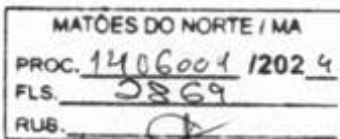 MATÕES DO NORTE / MA
PROC. 1406001 /2024
FLS. 2869
RUB.